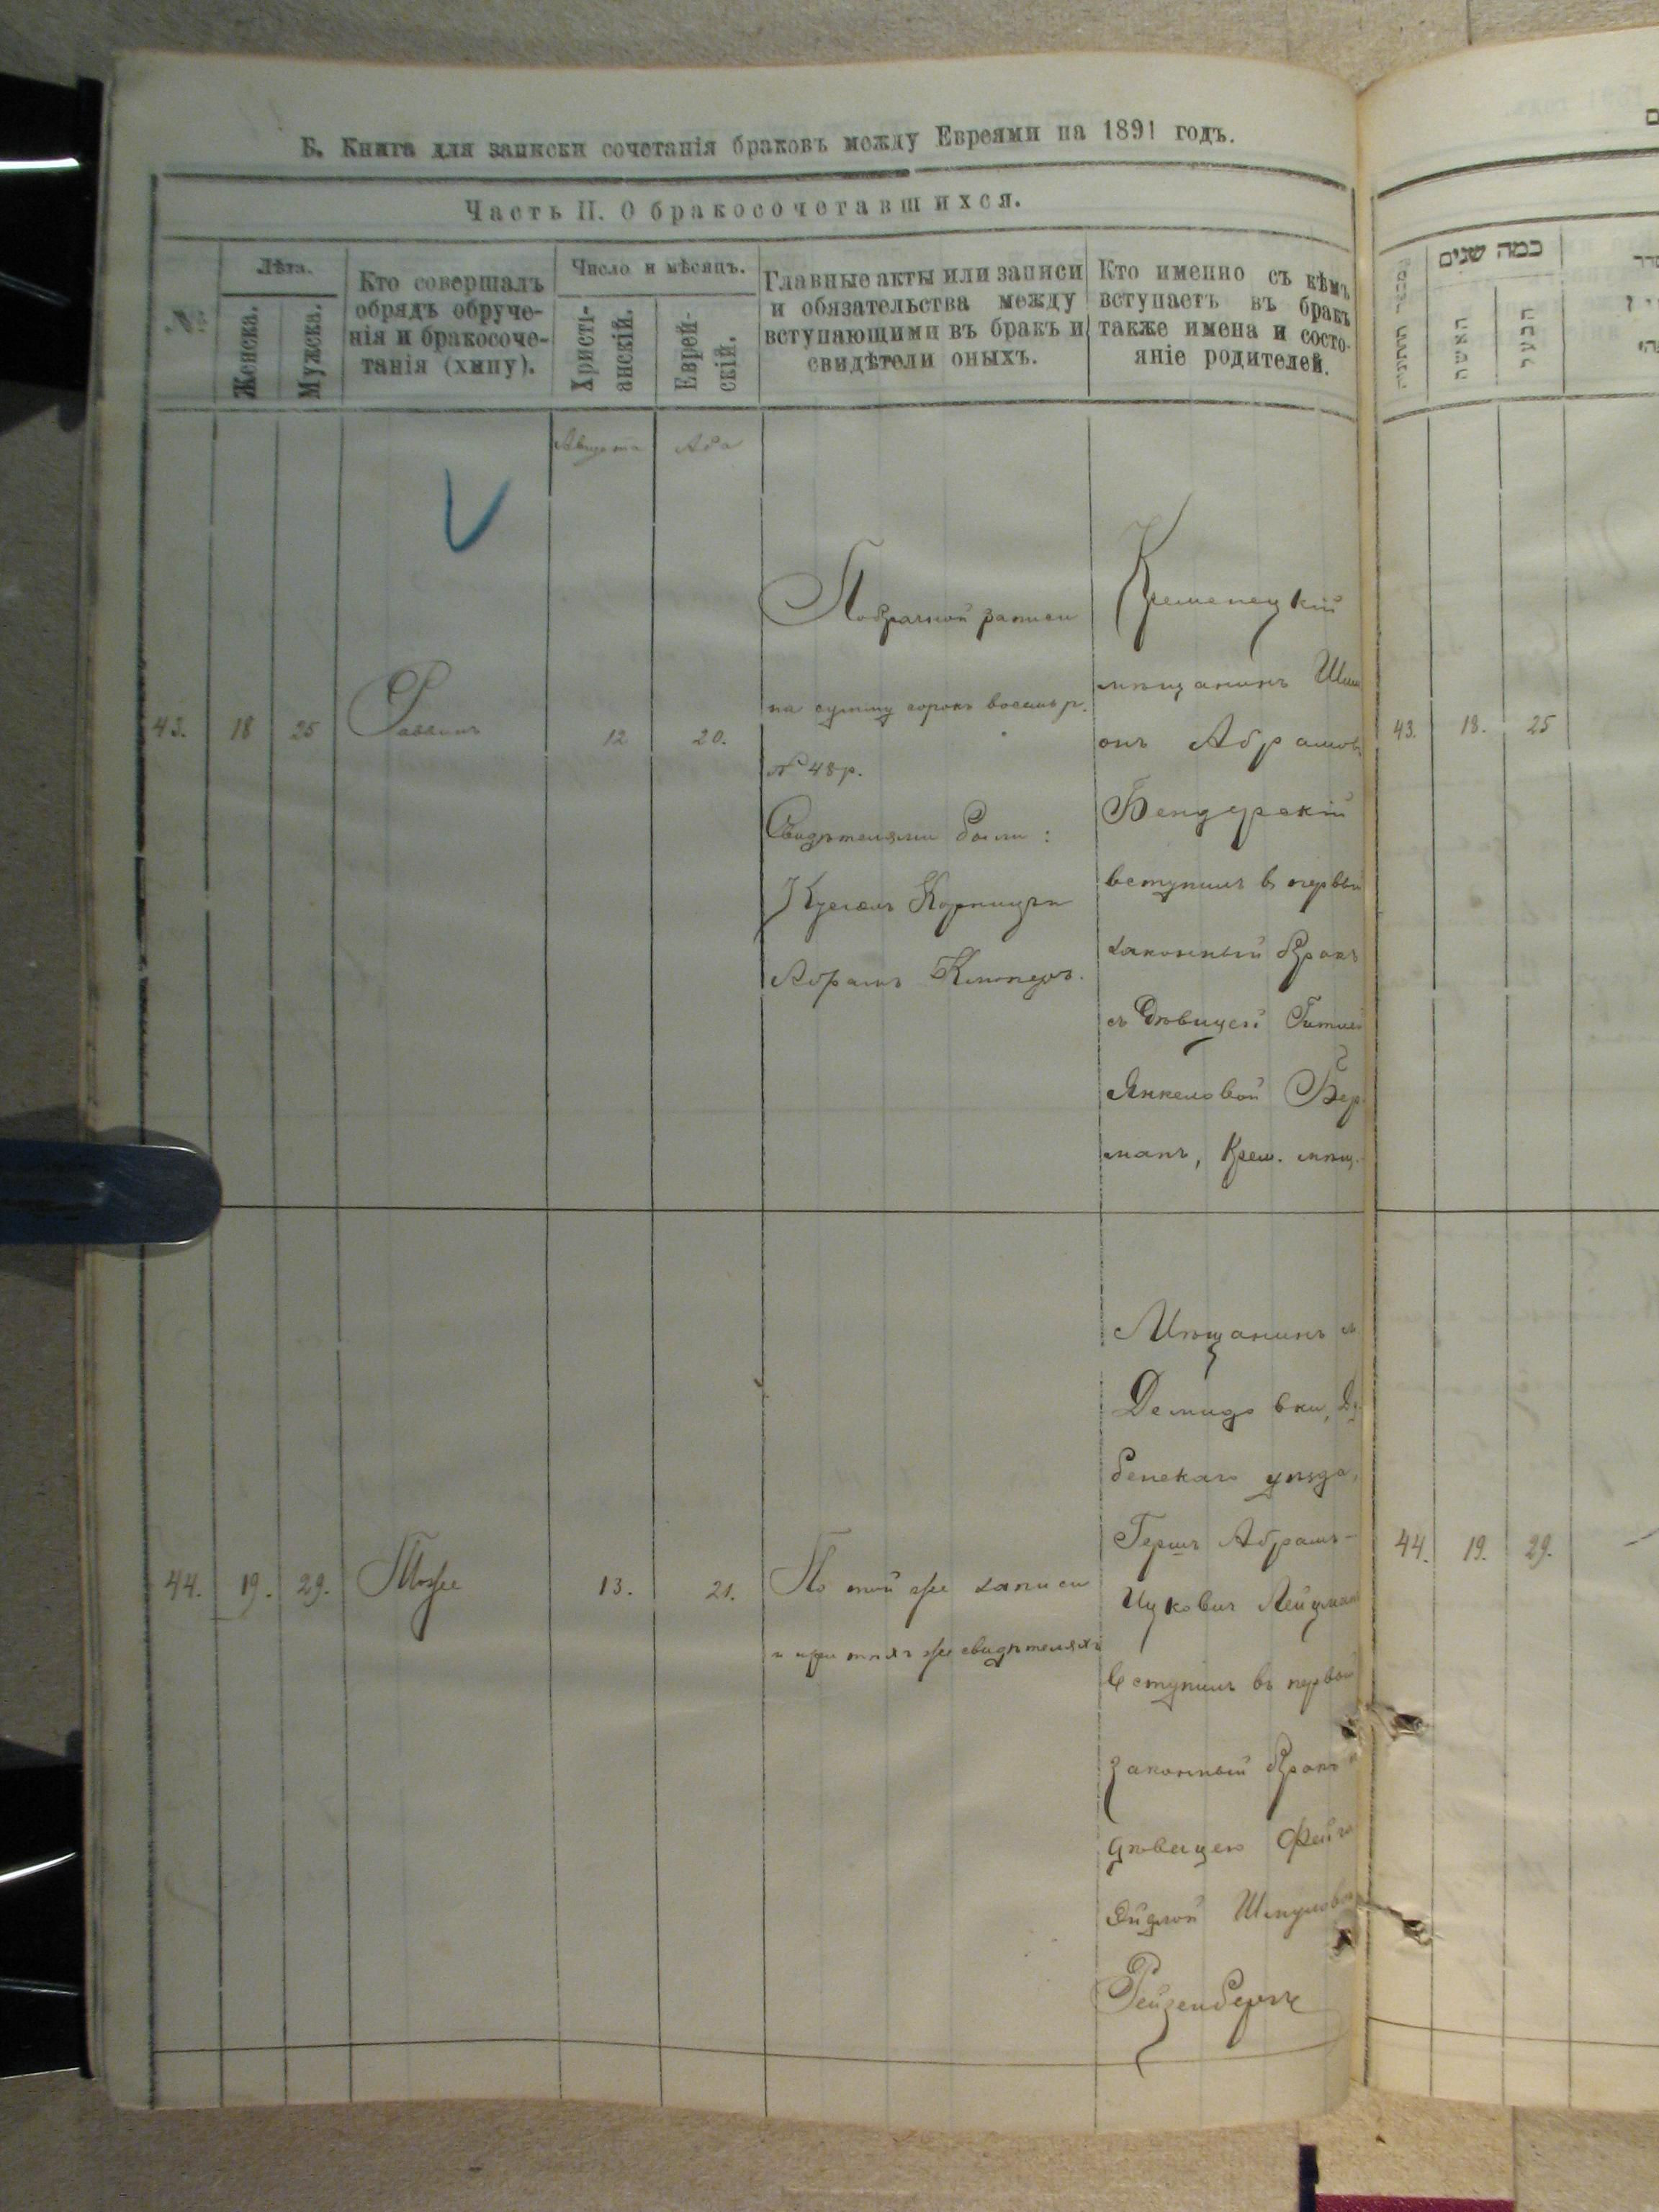 Б. Книга для записки сочетанія браковъ между Евреями на 1891 годъ.
Часть II. О бракосочетавшихся.
№
Лѣта.
Женска.
Мужска.
Кто совершалъ
обрядъ обруче-
нія и бракосоче-
танія (хипу).
Число и мѣсяцъ.
Христі-
анскій.
Еврей-
скій.
Главные акты или записи
и обязательства между
вступающими въ бракъ и
свидѣтели оныхъ.
Кто именно съ кѣмъ
вступаетъ въ бракъ
также имена и состо-
яніе родителей.
Августа
Ава
43.
18
25
Раввинъ
12
20.
По брачной записи
на сумму сорокъ восемь р.
№ 48 р.
Свидѣтелями были:
Абрамъ
Кременецкій
мѣщанинъ Шим
онъ Абрамов
Бендерскій
вступилъ в первый
законный бракъ
съ дѣвицей Гитлей
Янкеловой Бер
манъ, Крем. мѣщ.
44.
19.
29.
Тоже
13.
21.
По той же записи
и при тѣхъ же свидѣтеляхъ
Мѣщанинъ м.
Демидовки, Ду
бенскаго уѣзда,
Гершъ Абрамъ-
Ицковичъ
вступилъ въ первый
законный бракъ с
дѣвицею Фейга
Эйдлой Шмулов
Рейзенбергъ
כמה שנים
האשה
הבעל
43.
18.
25
44.
19.
29.